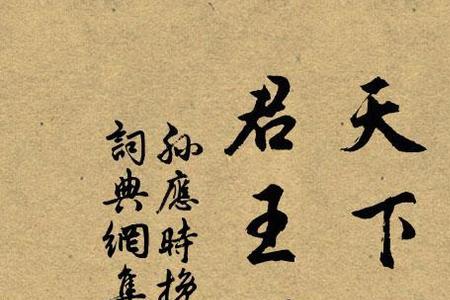 天下
君王
孫應時挽
詞典網集